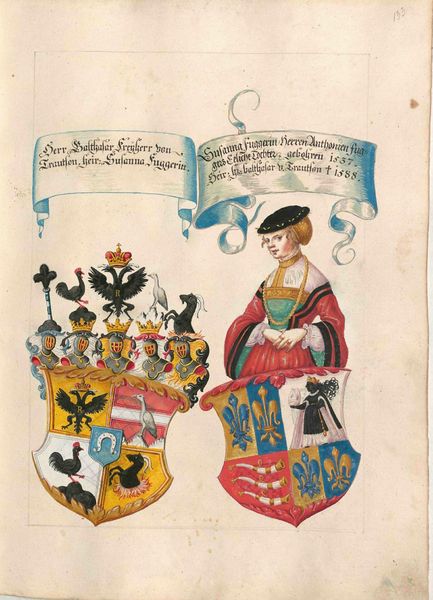 133
Herr Balthasar Freyherr von
Trautson, heir. Susanna Fuggerin.
Susanna Fuggerin Herren Anthonien Fug-
gers Eeliche Tochter, gebohren 1537.
Heir: balthasar v. Trautson † 1588.
R